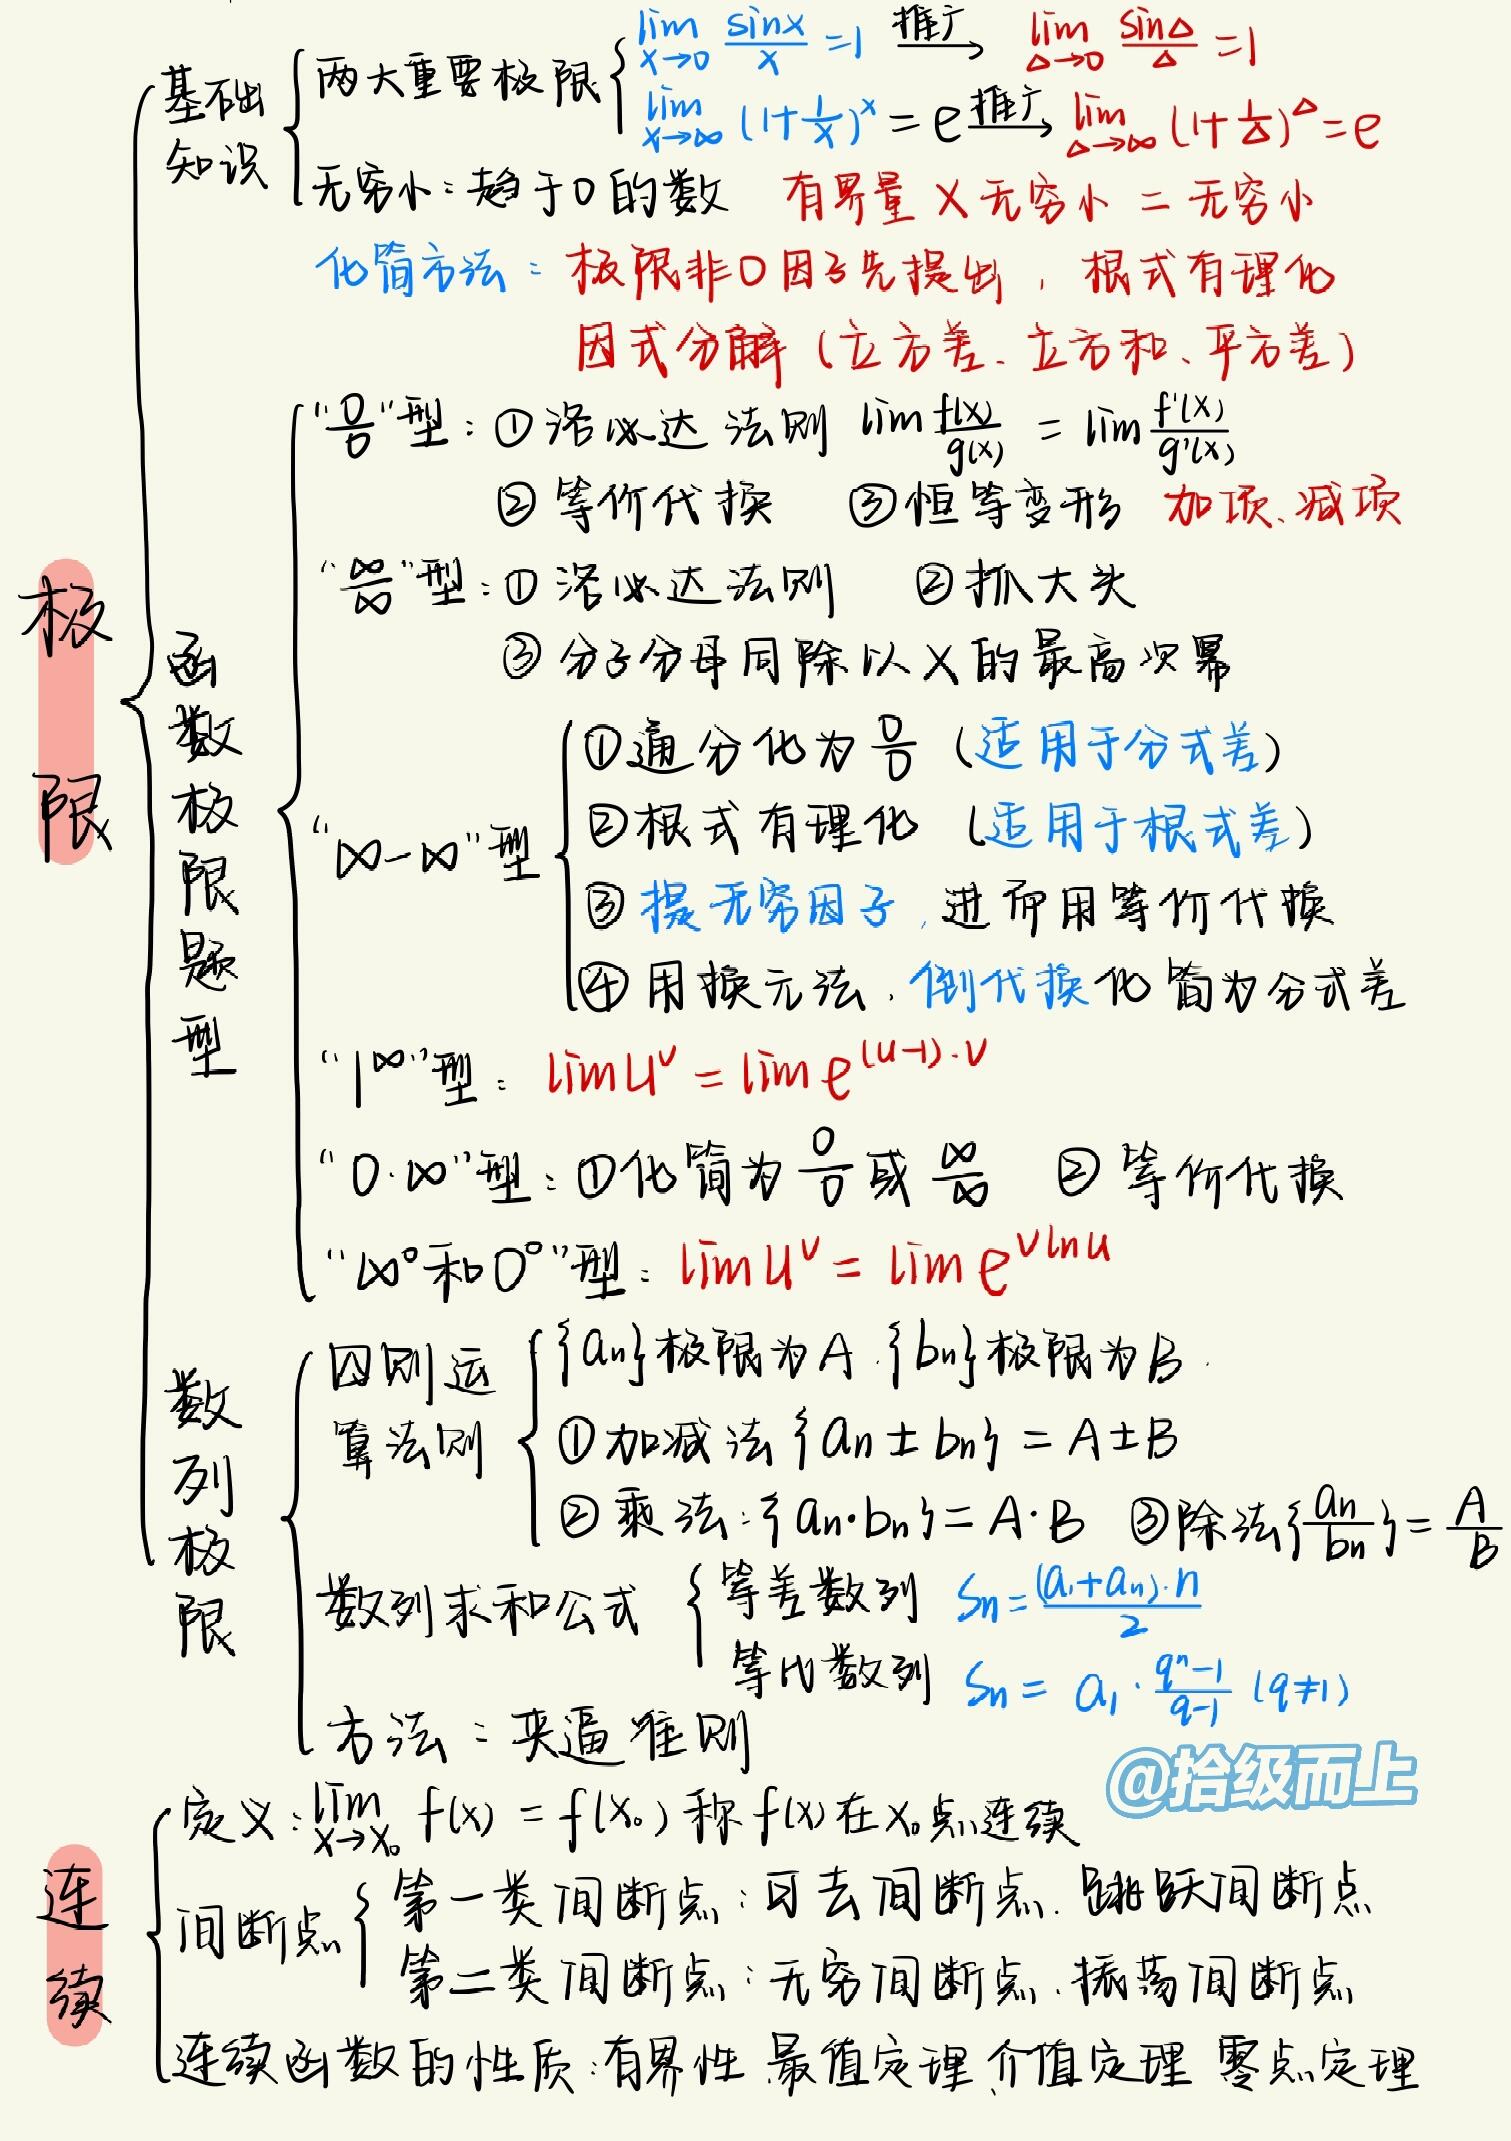 极限
基础知识
两大重要极限
lim x→0 sinx/x =1 推广→ lim Δ→0 sinΔ/Δ =1
lim x→∞ (1+1/x)^x = e 推广→ lim Δ→∞ (1+1/Δ)^Δ = e
无穷小：趋于0的数 有界量×无穷小=无穷小
化简方法：极限非0因子先提出，根式有理化
因式分解（立方差、立方和、平方差）
函数极限题型
"0/0"型：①洛必达法则 lim f(x)/g(x) = lim f'(x)/g'(x)
②等价代换 ③恒等变形 加项、减项
"∞/∞"型：①洛必达法则 ②抓大头
③分子分母同除以x的最高次幂
"∞-∞"型
①通分化为0/0（适用于分式差）
②根式有理化（适用于根式差）
③提无穷因子，进而用等价代换
④用换元法，倒代换化简为分式差
"1^∞"型：lim u^v = lim e^(u-1)·v
"0·∞"型：①化简为0/0或∞/∞ ②等价代换
"∞^0和0^0"型：lim u^v = lim e^vlnu
数列极限
四则运算法则
{an}极限为A，{bn}极限为B，
①加减法{an±bn}=A±B
②乘法：{an·bn}=A·B ③除法{an/bn}=A/B
数列求和公式
等差数列 Sn=(a₁+an)·n/2
等比数列 Sn=a₁·(qⁿ-1)/(q-1) (q≠1)
方法：夹逼准则
@拾级而上
连续
定义：lim x→x₀ f(x)=f(x₀)称f(x)在x₀点连续
间断点
第一类间断点：可去间断点、跳跃间断点
第二类间断点：无穷间断点、振荡间断点
连续函数的性质：有界性 最值定理 介值定理 零点定理